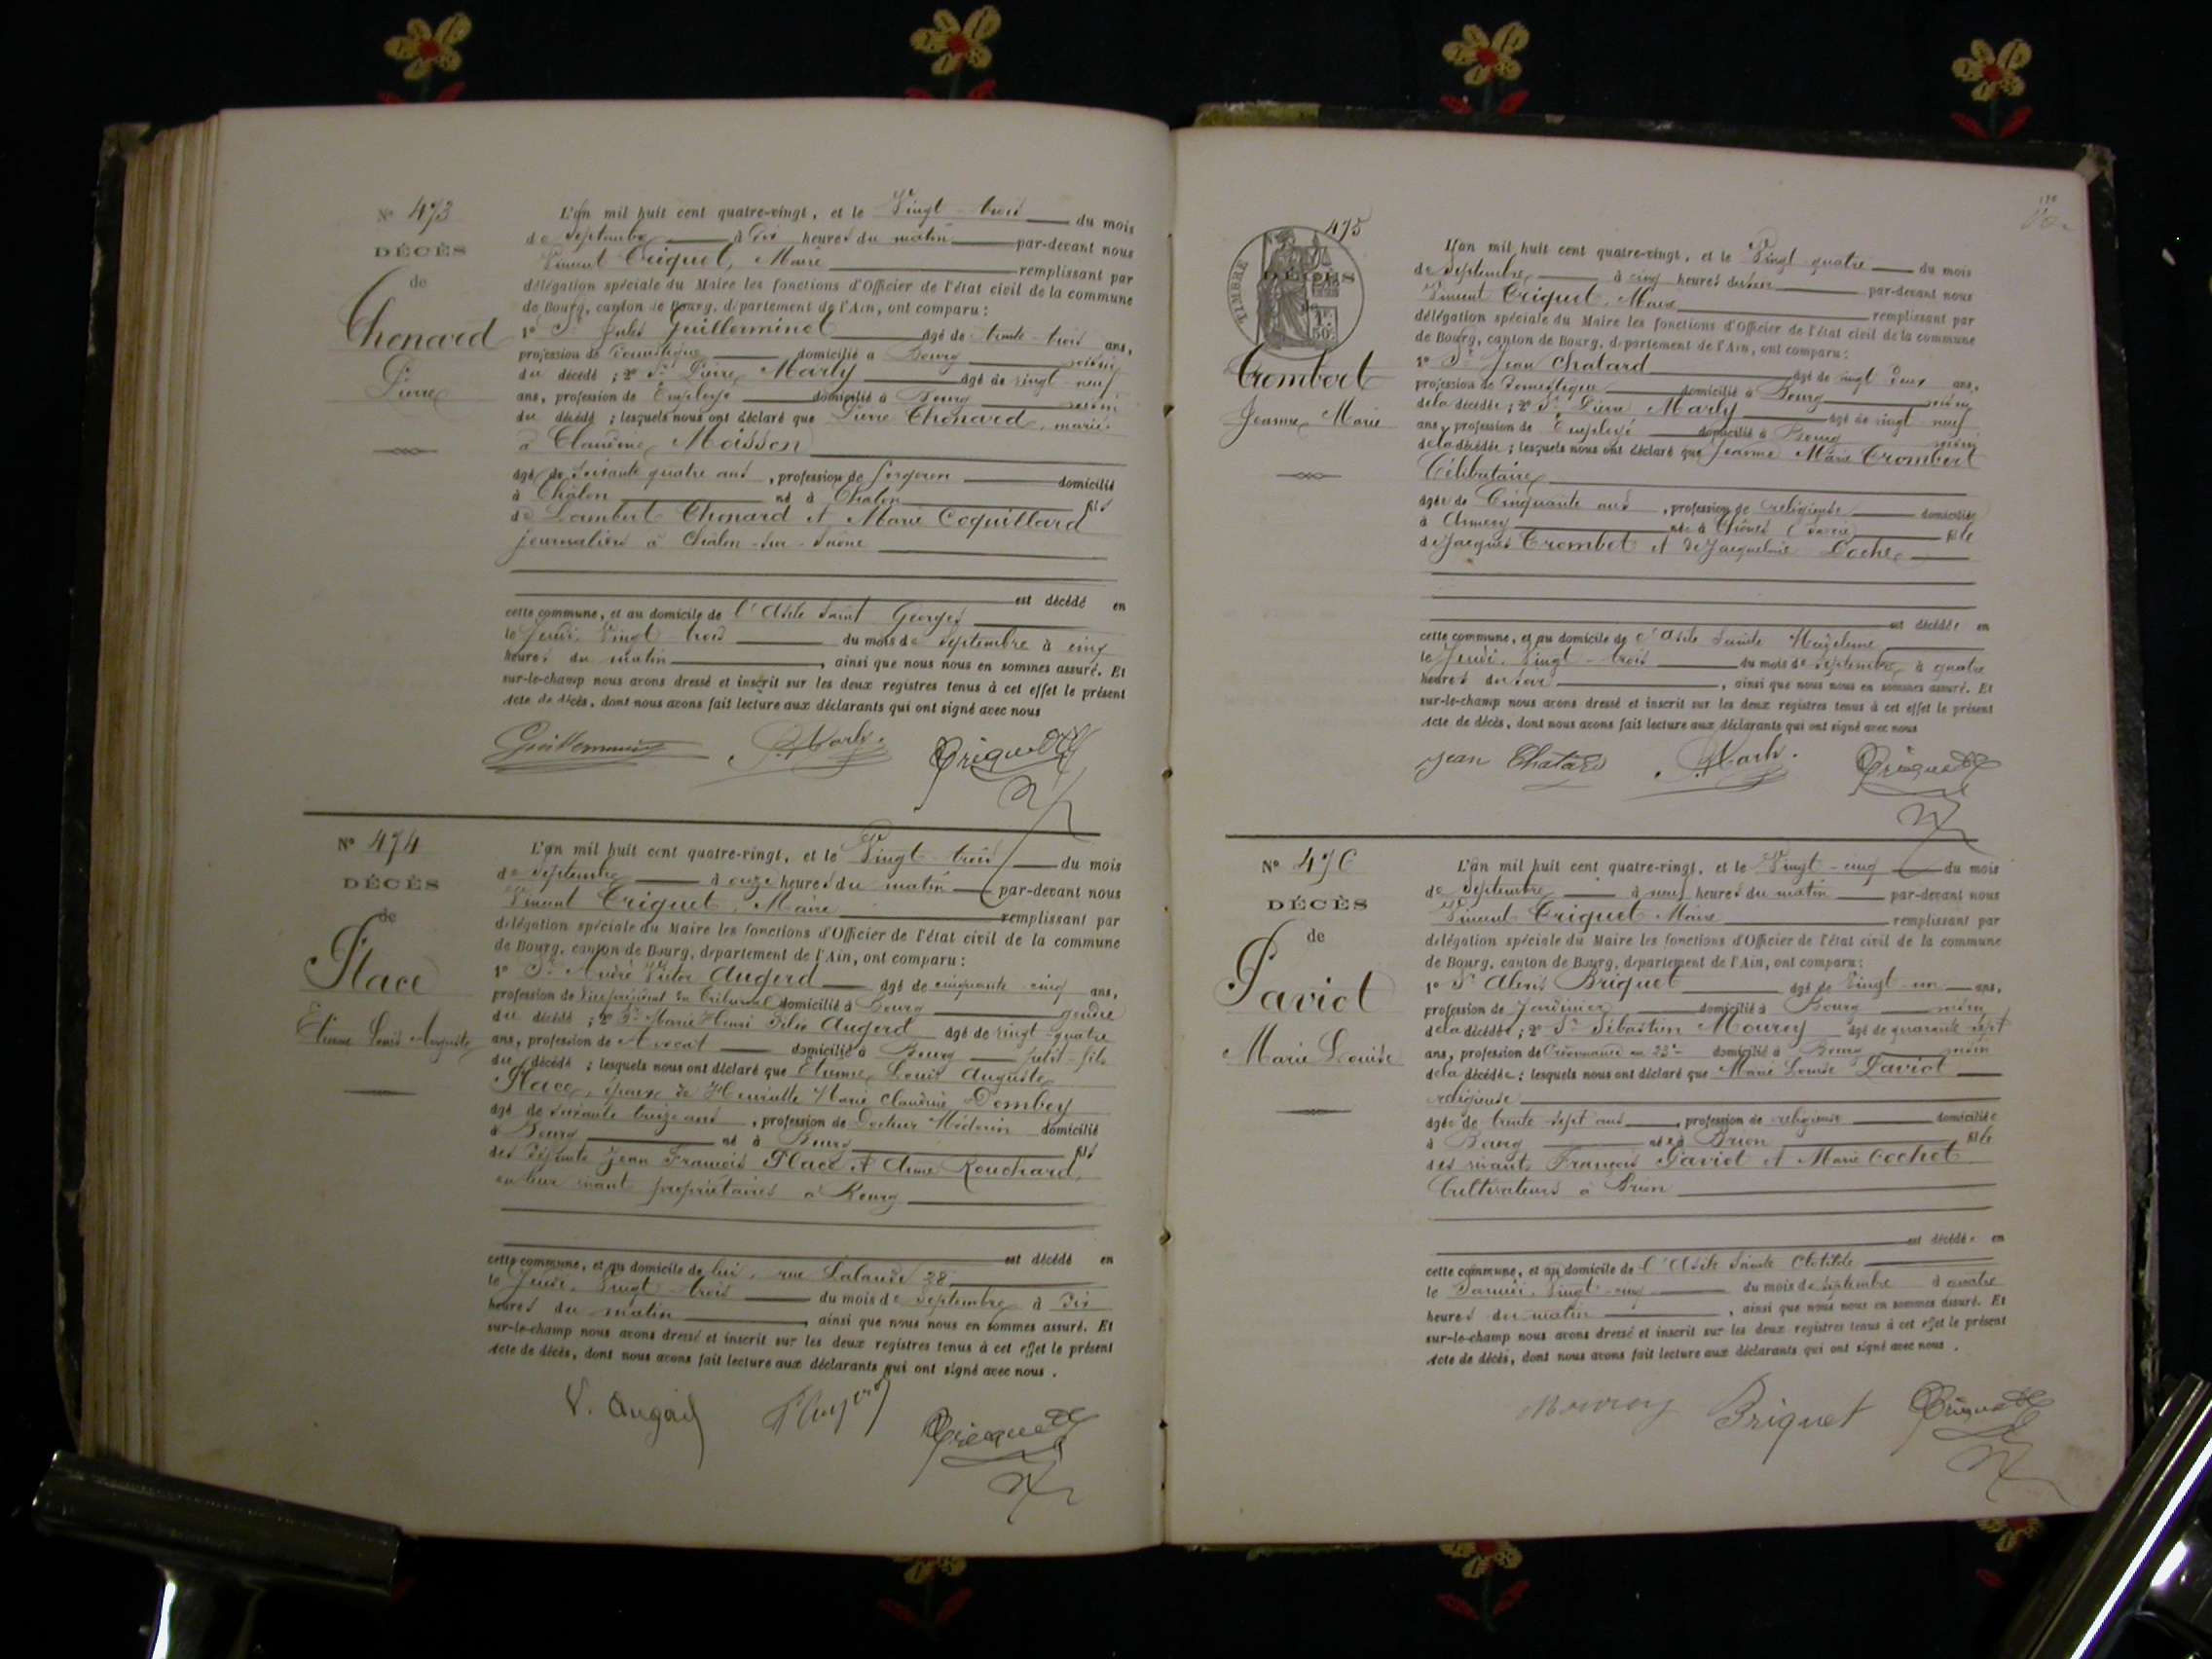 N° 473
DÉCÈS
de
Thonard
Pierre
L'an mil huit cent quatre-vingt, et le Vingt-trois du mois
de Septembre à Dix heures du matin par-devant nous
Vincent Criquet, Maire remplissant par
délégation spéciale du Maire les fonctions d'Officier de l'état civil de la commune
de Bourg, canton de Bourg, département de l'Ain, ont comparu :
1° Sr Jules Guillerminet âgé de trente-trois ans,
profession de domestique domicilié à Bourg voisin
du décédé ; 2° Sr Pierre Marly âgé de vingt neuf
ans, profession de Employé domicilié à Bourg voisin
du décédé ; lesquels nous ont déclaré que Pierre Thonard, marié
à Claudine Moisson
âgé de soixante quatre ans, profession de forgeron domicilié
à Châlon né à Chalon fils
de Lambert Thonard et Marie Coquillard
journaliers à Châlon-sur-Saône
est décédé en
cette commune, et au domicile de l'Asile Saint Georges
le Jeudi Vingt trois du mois de Septembre à cinq
heures du matin, ainsi que nous nous en sommes assuré. Et
sur-le-champ nous avons dressé et inscrit sur les deux registres tenus à cet effet le présent
Acte de décès, dont nous avons fait lecture aux déclarants qui ont signé avec nous
N° 474
DÉCÈS
de
Place
Etienne Louis Auguste
L'an mil huit cent quatre-vingt, et le Vingt-trois du mois
de Septembre à onze heures du matin par-devant nous
Vincent Criquet, Maire remplissant par
délégation spéciale du Maire les fonctions d'Officier de l'état civil de la commune
de Bourg, canton de Bourg, département de l'Ain, ont comparu :
1° Sr André Victor Augerd âgé de cinquante-cinq ans,
profession de Vice président du Tribunal domicilié à Bourg gendre
du décédé ; 2° Sr Marie Henri Félix Augerd âgé de vingt-quatre
ans, profession de Avocat domicilié à Bourg petit-fils
du décédé ; lesquels nous ont déclaré que Etienne Louis Auguste
Place, époux de Henriette Marie Claudine Dombey
âgé de soixante treize ans, profession de Docteur Médecin domicilié
à Bourg né à Bourg fils
des défunts Jean François Place et Anne Rouchard,
en leur vivant propriétaires à Bourg
est décédé en
cette commune, et au domicile de lui, rue Lalande 38
le Jeudi, Vingt-trois du mois de Septembre à Dix
heures du matin, ainsi que nous nous en sommes assuré. Et
sur-le-champ nous avons dressé et inscrit sur les deux registres tenus à cet effet le présent
Acte de décès, dont nous avons fait lecture aux déclarants qui ont signé avec nous.
V. Augerd
475
TIMBRE
DÉCÈS
Trombert
Jeanne Marie
L'an mil huit cent quatre-vingt, et le Vingt quatre du mois
de Septembre à cinq heures du soir par-devant nous
Vincent Criquet, Maire remplissant par
délégation spéciale du Maire les fonctions d'Officier de l'état civil de la commune
de Bourg, canton de Bourg, département de l'Ain, ont comparu :
1° Sr Jean Chatard âgé de vingt deux ans,
profession de domestique domicilié à Bourg voisin
de la décédée ; 2° Sr Pierre Marly âgé de vingt neuf
ans, profession de Employé domicilié à Bourg voisin
de la décédée ; lesquels nous ont déclaré que Jeanne Marie Trombert
Célibataire
âgée de Cinquante ans, profession de religieuse domiciliée
à Annecy née à Thônes (Savoie) fille
de Jacques Trombet et de Jacqueline Loche
est décédée en
cette commune, et au domicile de l'Asile Sainte Magdeleine
le Jeudi, Vingt-trois du mois de Septembre à quatre
heures du soir, ainsi que nous nous en sommes assuré. Et
sur-le-champ nous avons dressé et inscrit sur les deux registres tenus à cet effet le présent
Acte de décès, dont nous avons fait lecture aux déclarants qui ont signé avec nous
Jean Chatard
N° 476
DÉCÈS
de
Paviot
Marie Louise
L'an mil huit cent quatre-vingt, et le Vingt-cinq du mois
de Septembre à neuf heures du matin par-devant nous
Vincent Criquet Maire remplissant par
délégation spéciale du Maire les fonctions d'Officier de l'état civil de la commune
de Bourg, canton de Bourg, département de l'Ain, ont comparu :
1° Sr Alexis Briquet âgé de Vingt-un ans,
profession de Jardinier domicilié à Bourg voisin
de la décédée ; 2° Sr Sébastien Mourey âgé de quarante sept
ans, profession de domicilié à Bourg voisin
de la décédée ; lesquels nous ont déclaré que Marie Louise Paviot
religieuse
âgée de trente-sept ans, profession de religieuse domiciliée
à Bourg née à Brion fille
des vivants François Paviot et Marie Cochet
Cultivateurs à Brion
est décédée en
cette commune, et au domicile de l'Asile Sainte Clotilde
le Samedi, Vingt-cinq du mois de Septembre à quatre
heures du matin, ainsi que nous nous en sommes assuré. Et
sur-le-champ nous avons dressé et inscrit sur les deux registres tenus à cet effet le présent
Acte de décès, dont nous avons fait lecture aux déclarants qui ont signé avec nous.
Mourey Briquet